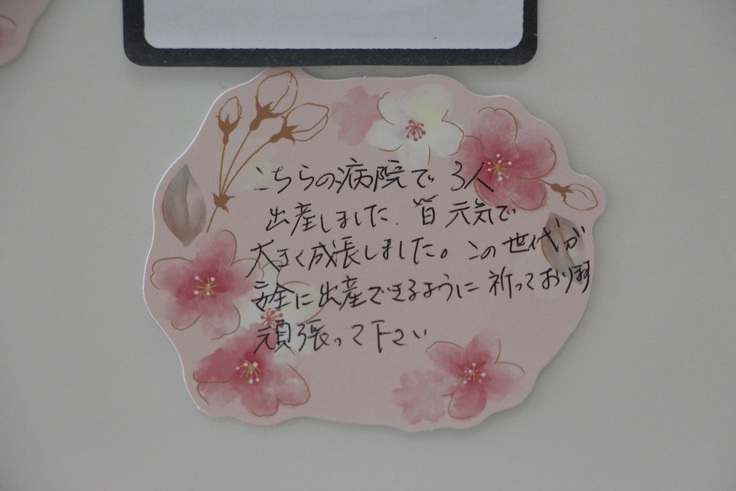 こちらの病院で 3人
出産しました. 皆 元気で
大きく成長しました。この世代が
安全に出産できるように 祈っております
頑張って下さい